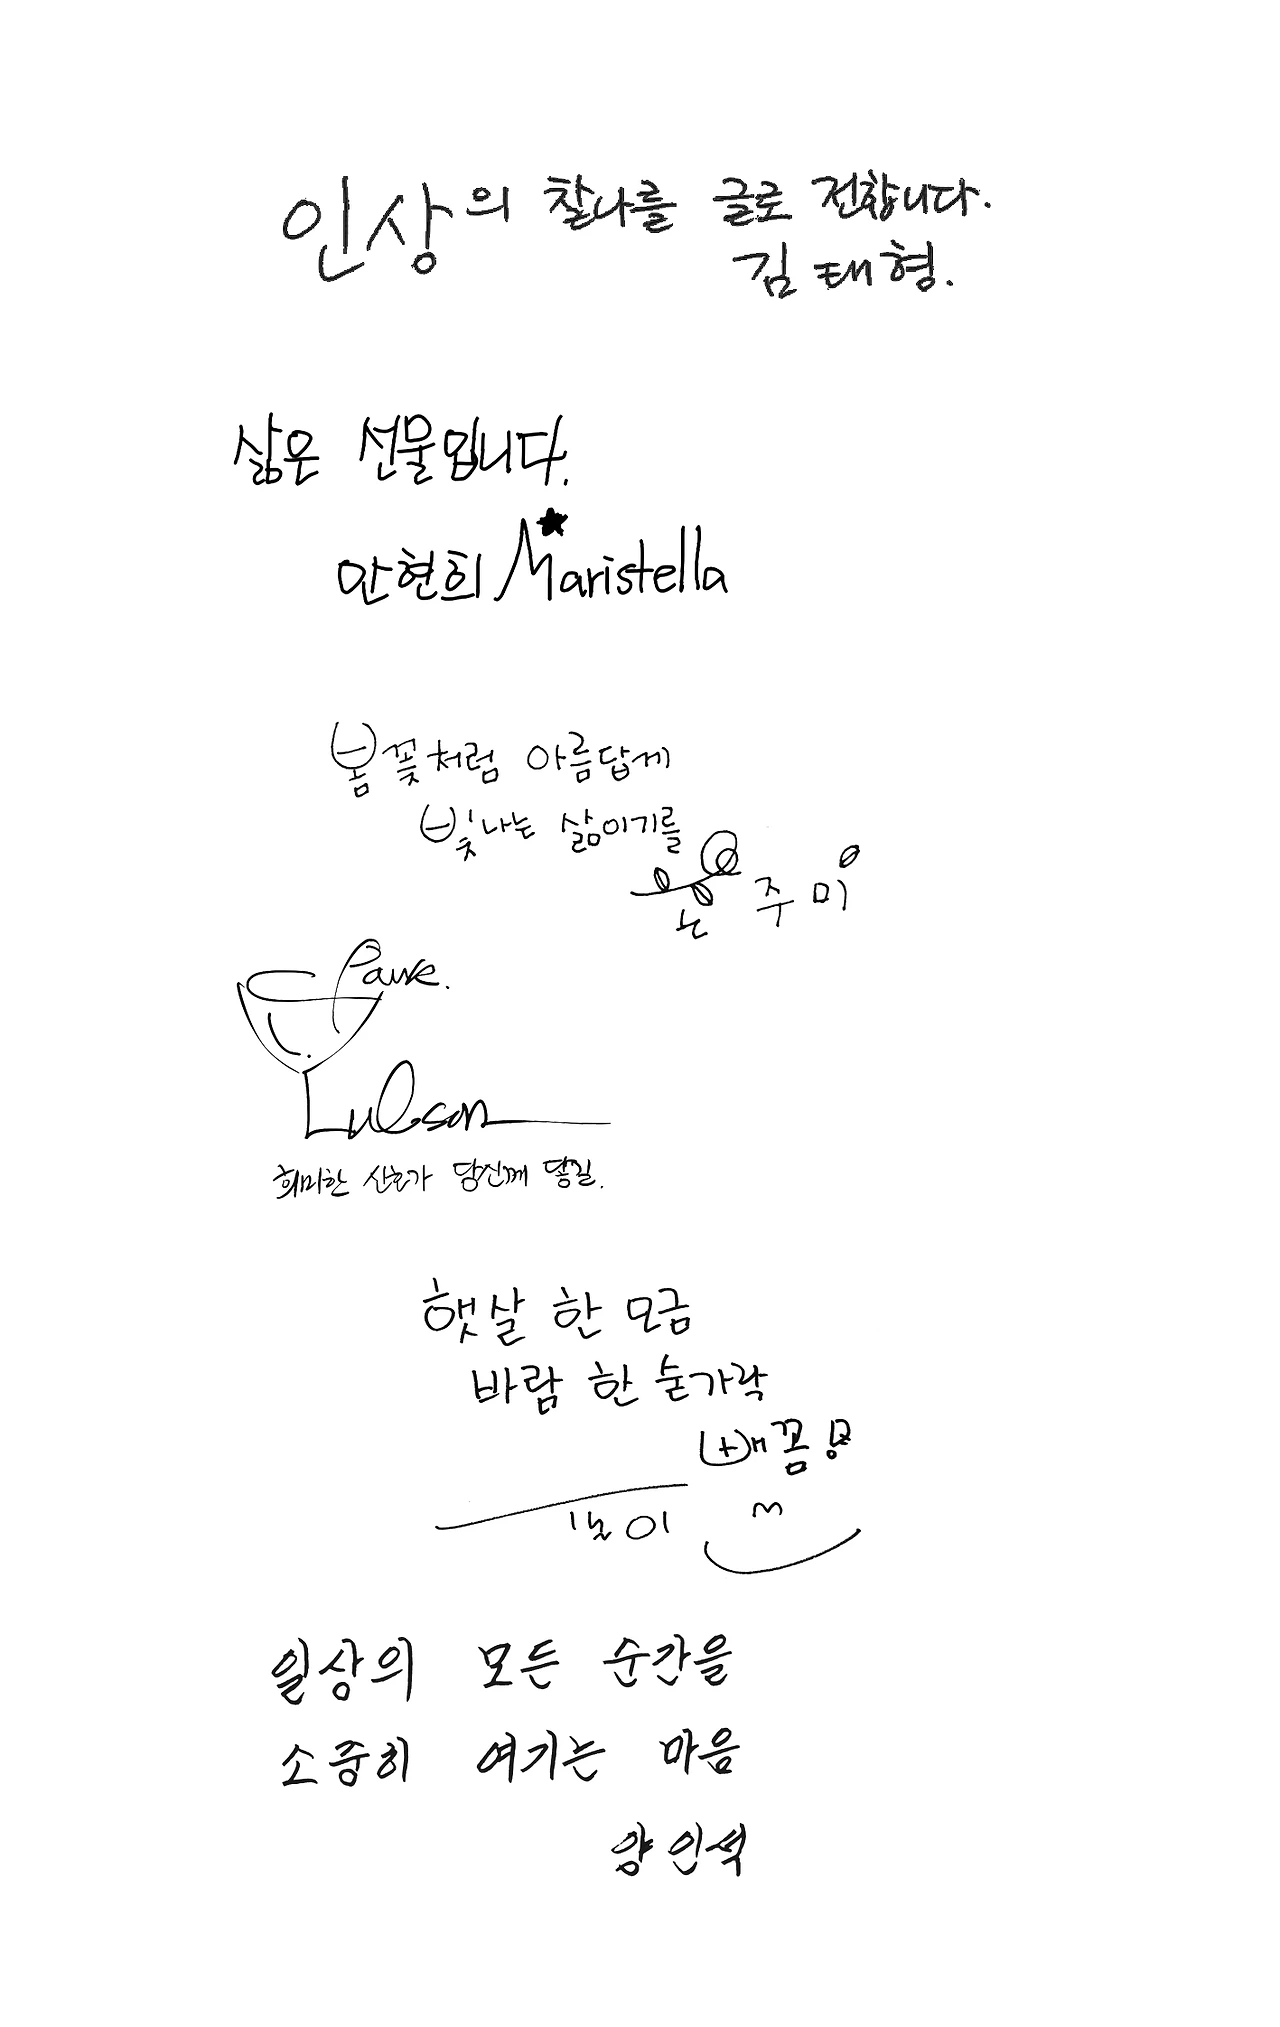 인상의 찰나를 글로 전합니다.
김태형.
삶은 선물입니다.
안현희 Maristella
봄꽃처럼 아름답게
빛나는 삶이기를
노주미
Pause.
희미한 신호가 당신께 닿길.
햇살 한 모금
바람 한 숟가락
빼꼼
일상의 모든 순간을
소중히 여기는 마음
양인석